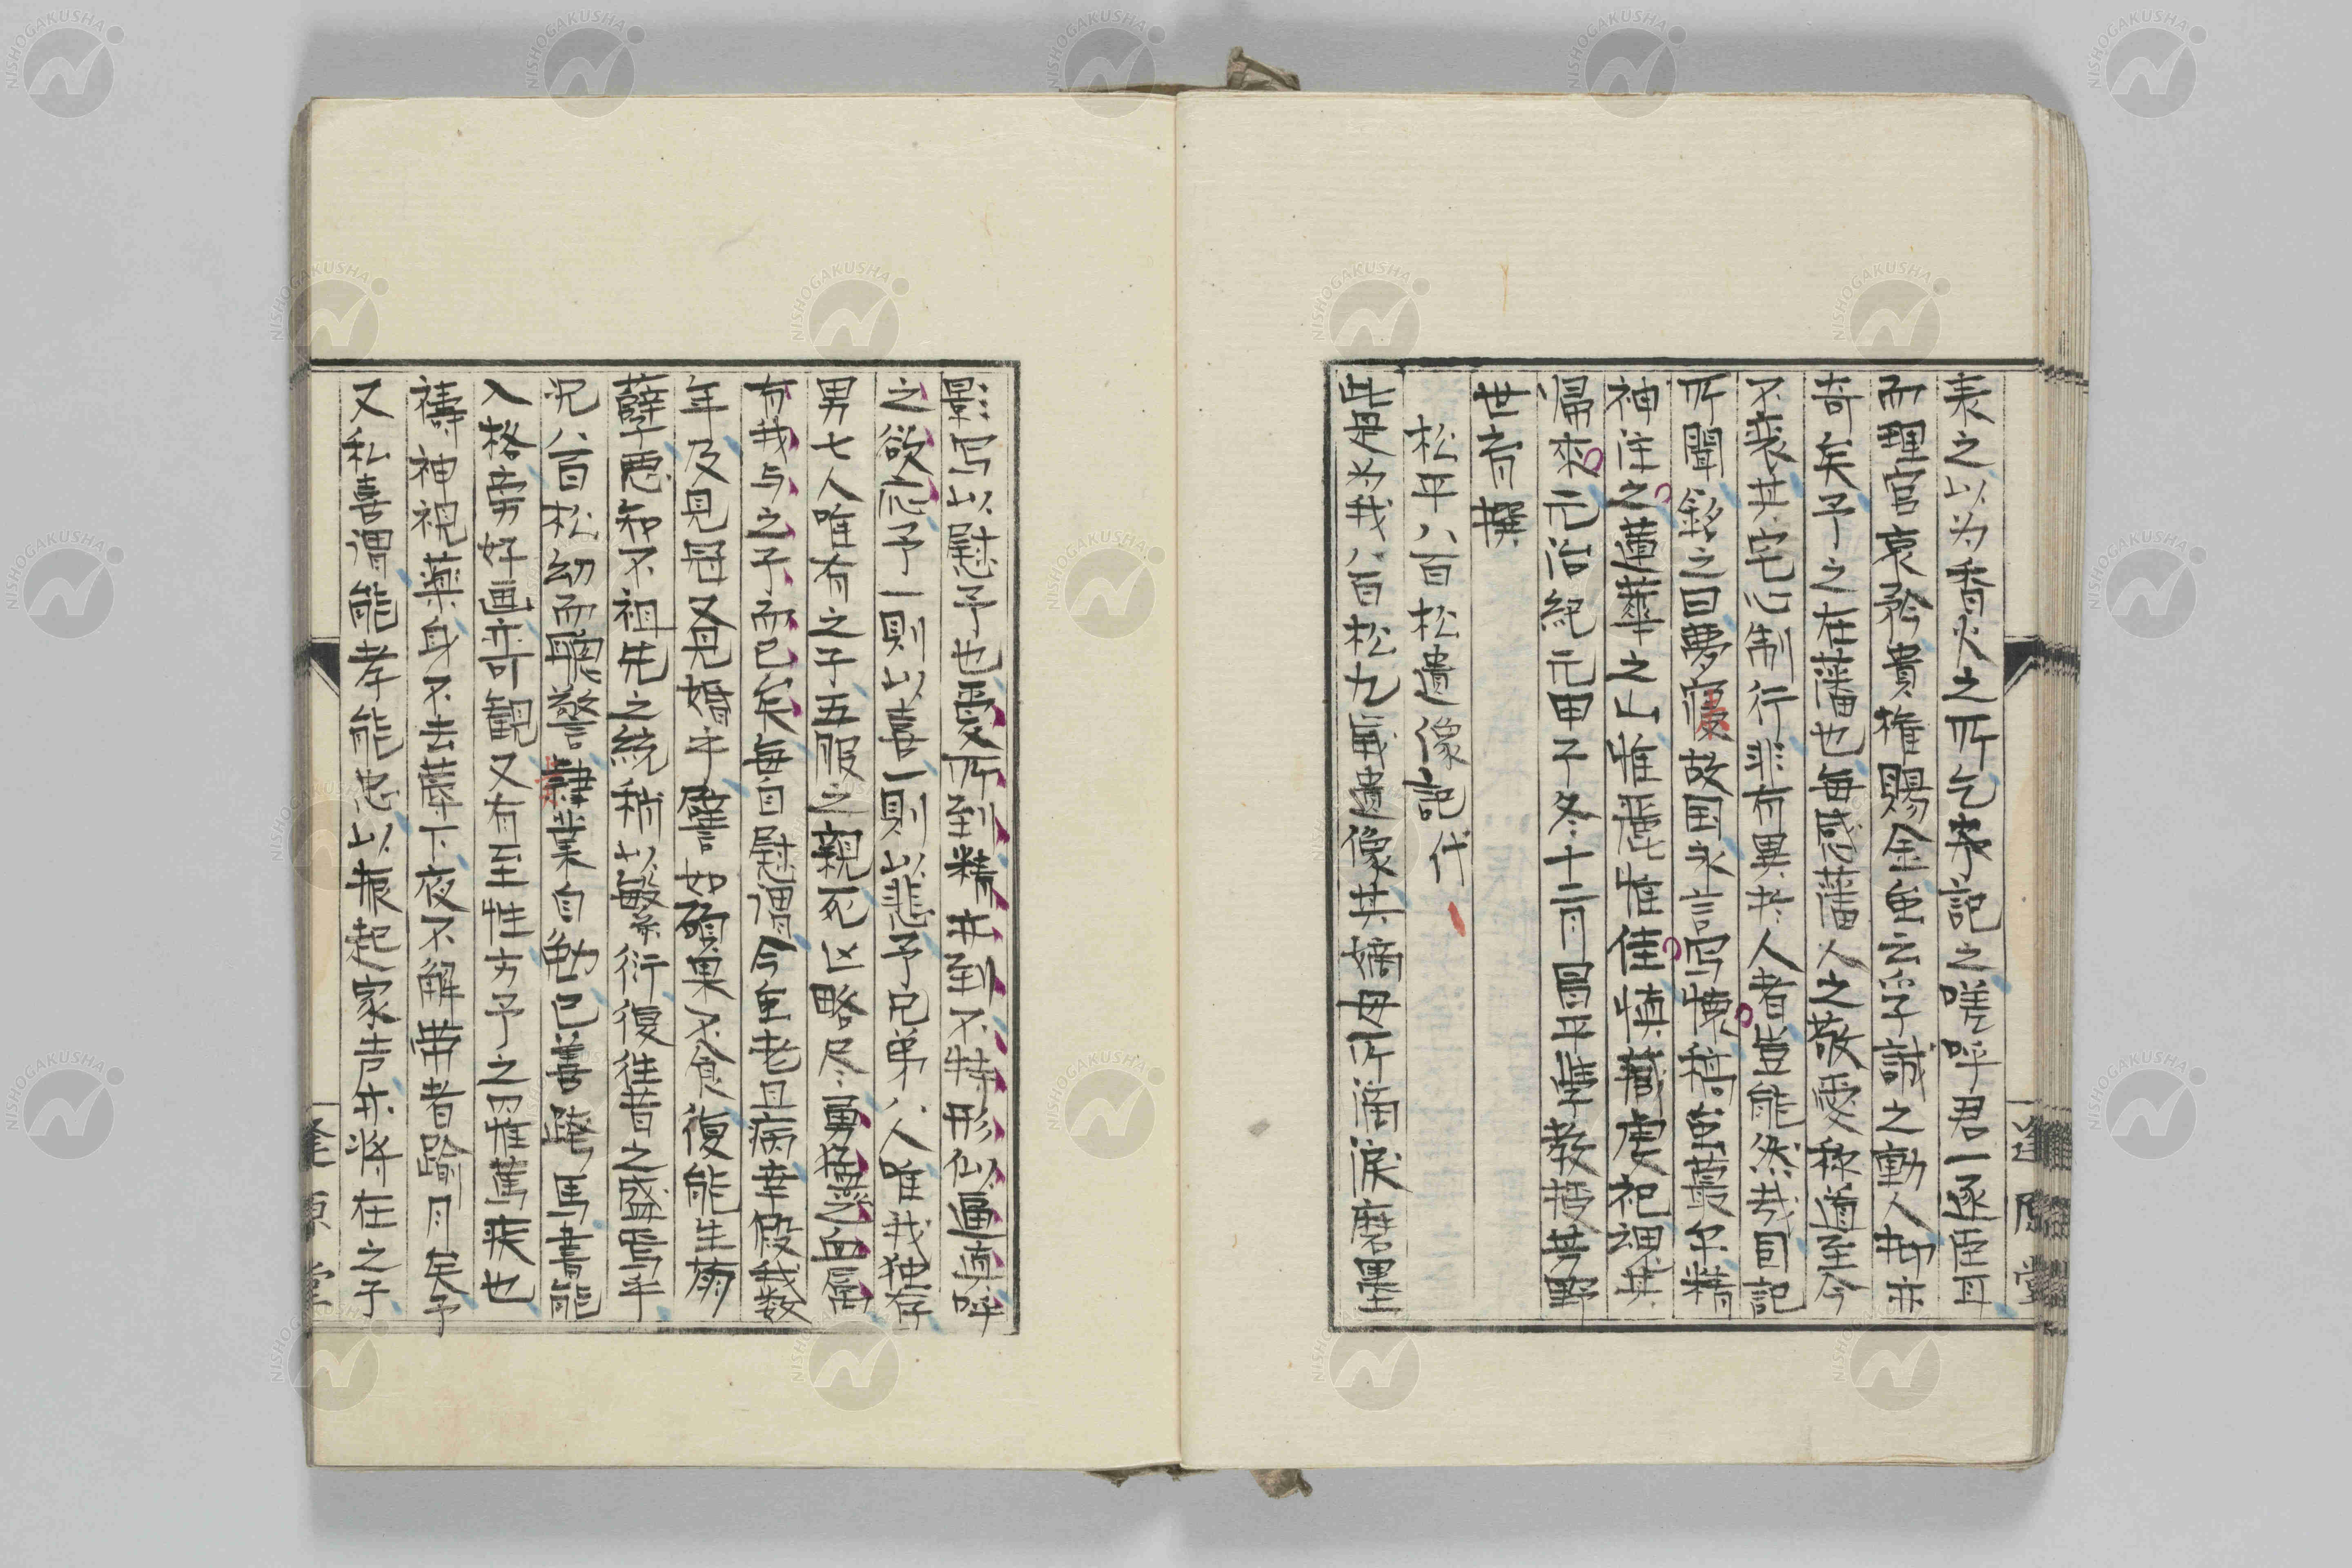 表之以为香火之所乞予記之嗟呼君一逐臣耳
而理官哀矜貴権賜金重云命子誠之動人物亦
奇矣予之在藩也毎感藩人之敬愛称道至今
不衰其宅心制行非有異於人者豈能然哉因記
所聞銘之曰夢寝故国永言写懐稿留叢尓精
神往之蓮華之山維麗維佳慎蔵虔祀魂其
帰来元治紀元甲子冬十二月昌平学教授芳野
世育撰
松平八百松遺像記代
此是为我八百松九眠遺像其嫡母所滴涙磨墨
影写以慰予也憂所到精亦到不特形似逼真呼
之欲応予一則以喜一則以悲予兄弟八人唯我独存
男七人唯有之子五服之親死亡略尽勇猶之血属
有我与之子而已矣毎自慰謂今重老且病幸仮我数
年及見冠又見婚乎譬如碩果不食復能生萠
蘖悪知不祖先之統稍以繁衍復往昔之盛焉乎
况八百松幼而聰警肄業自勉已善跨馬書能
入格旁好画亦可観又有至性方予之罹篤疾也
禱神視薬身不去蓐下夜不解帯者踰月矣予
又私喜謂能孝能忠以振起家声亦将在之子
逢原堂